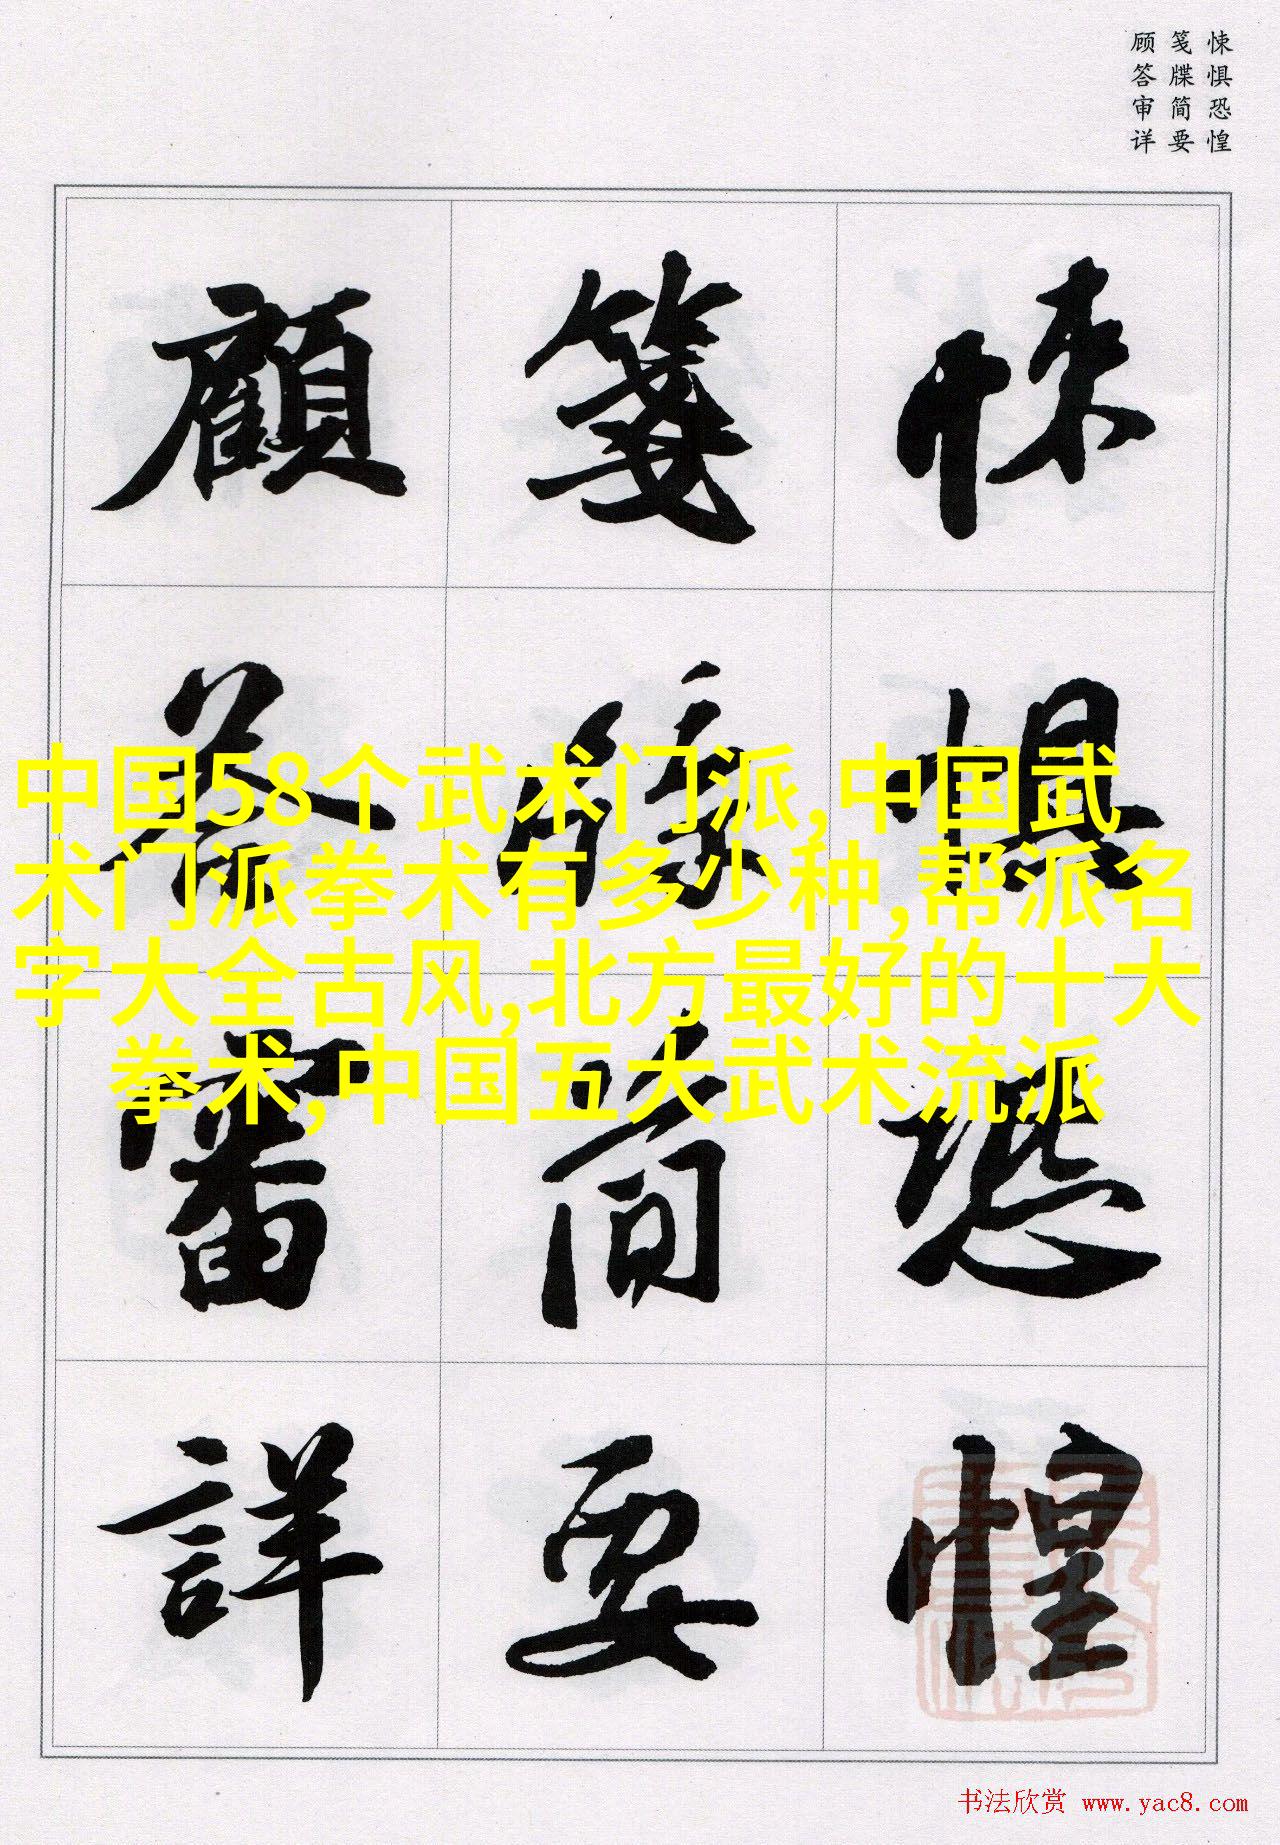 悚惧恐惶
笺牒简要
顾答审详
悚惧恐惶
箋牒简要
顧答審詳
中国58个武术门派,中国武
术门派拳术有多少种,帮派名
字大全古风,北方最好的十大
拳术,中国五大武术流派
书法欣赏 www.yac8.com